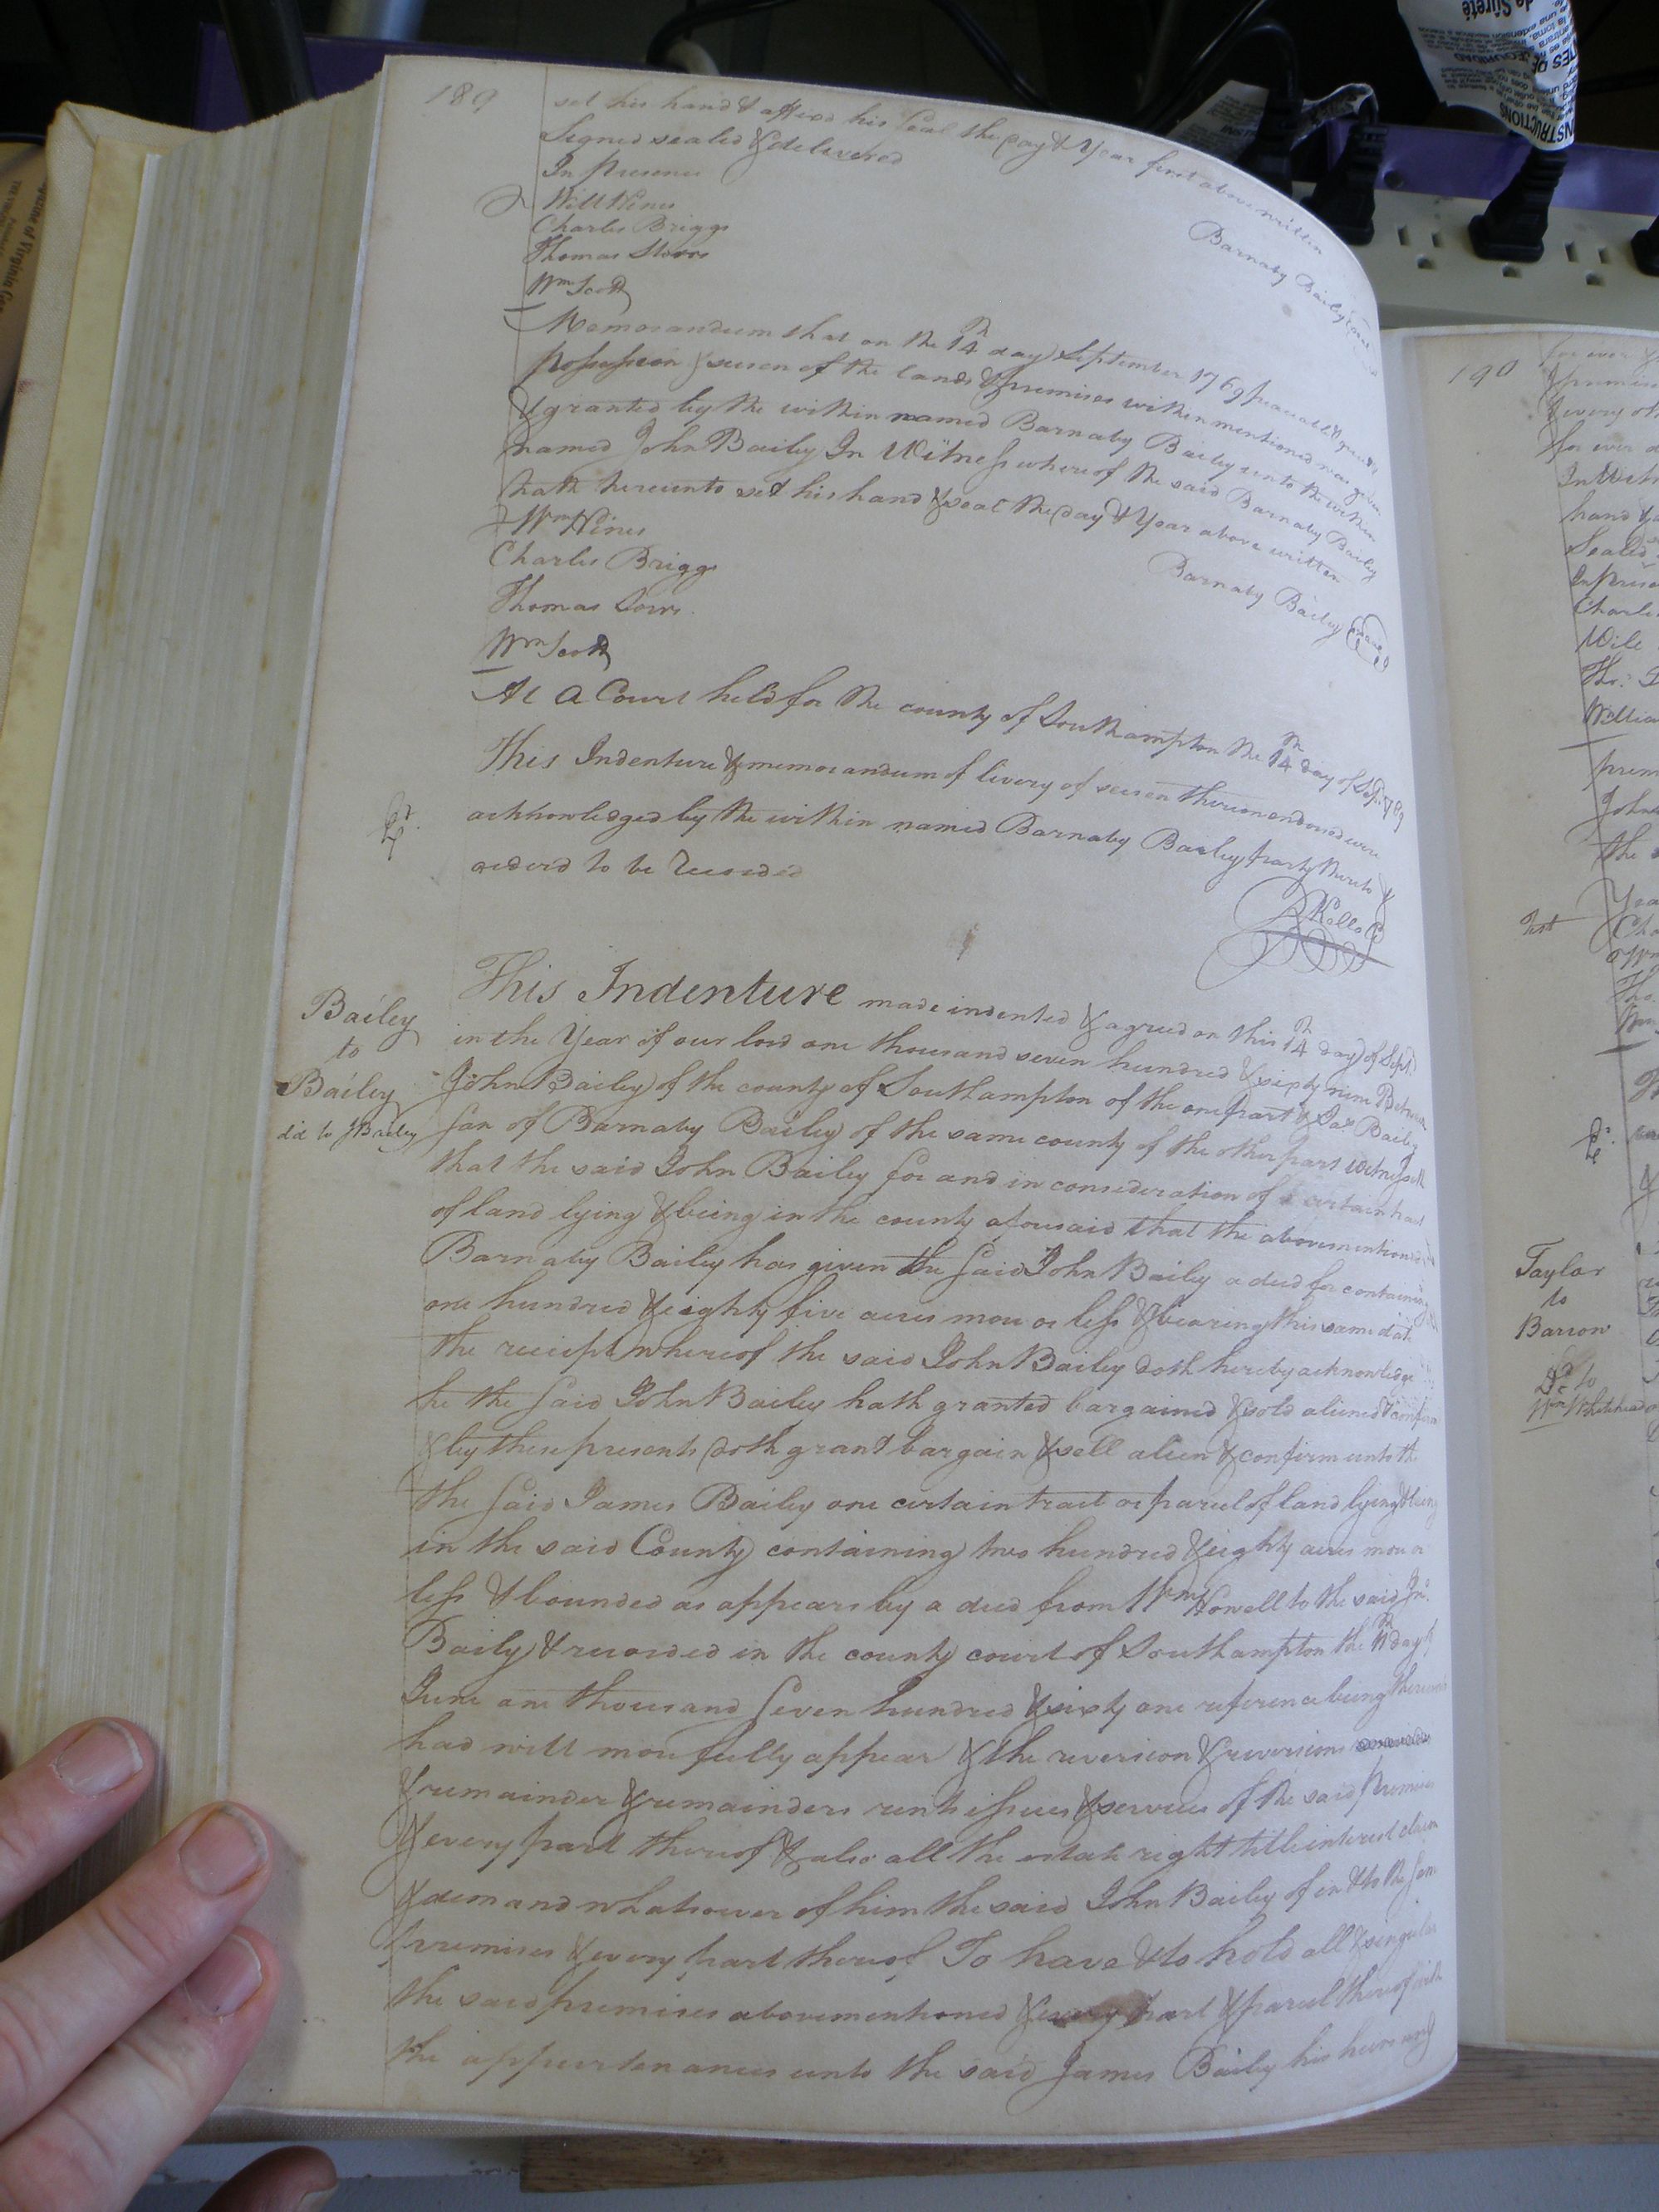 189
set his hand & affixd his Seal the Day & Year first above written
Signed sealed & delivered
In Presence
Barnaby Baily
Will Hines
Charles Briggs
Thomas
Wm Scott
Memorandum that on the 14th day September 1769 peaceable & quiet
possession & seisen of the lands & premises within mentioned was given
& granted by the within named Barnaby Baily unto the within
named John Baily In Witness whereof the said Barnaby Bailey
hath hereunto set his hand & seal the day & Year above written
Barnaby Bailey
Wm Hines
Charles Briggs
Thomas
Wm Scott
At a Court held for the county of Southampton the 14th day of Sept.
This Indenture & memorandum of livery of seisen thereon endorsed were
acknowledged by the within named Barnaby Bailey party thereto &
orderd to be Recorded
Kello
Bailey
to
Bailey
dd to J Bailey
This Indenture made indented & agreed on this 14th day of Sept.
in the Year of our lord one thousand seven hundred & sixty nine Between
John Bailey of the county of Southampton of the one part & Jas Bailey
son of Barnaby Bailey of the same county of the other part witnesseth
that the said John Bailey for and in consideration of a certain tract
of land lying & being in the county aforesaid that the abovementioned
Barnaby Bailey has given the said John Bailey a deed for containing
one hundred & eighty five acres more or less & bearing this same date
the receipt whereof the said John Bailey doth hereby acknowledge
he the said John Bailey hath granted bargained & sold aliened & confirm
& by these presents doth grant bargain & sell alien & confirm unto th
the said James Bailey one certain tract or parcel of land lying & being
in the said County containing two hundred & eighty acres more or
less & bounded as appears by a deed from Wm Howell to the said Jno.
Baily & recorded in the county court of Southampton the 11th day of
June one thousand seven hundred & sixty one reference being thereunto
had will more fully appear & the reversion & reversions
& remainder & remainders rents issues & services of the said premises
& every part thereof & also all the estate right title interest claim
& demand whatsoever of him the said John Bailey of in & to the same
premises & every part thereof To have & to hold all & singular
the said premises abovementioned & every part & parcel thereof with
the appurtenances unto the said James Bailey his heirs and
190
for ever
for ever
hand &
Charles
Test
Taylor
to
Barrow
Dd to
Wm Whitehead
de Sûreté
INSTRUCTIONS